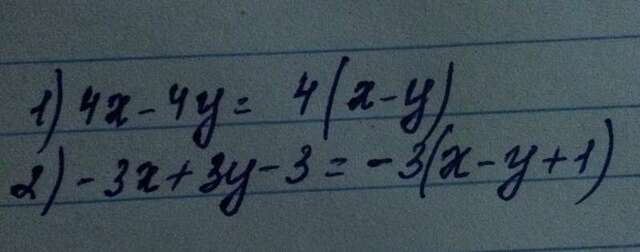 1) 4x - 4y = 4(x - y)
2) - 3x + 3y - 3 = - 3(x - y + 1)